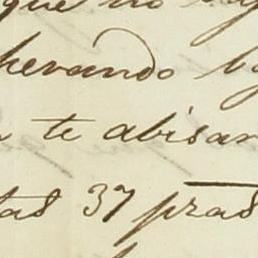 que no
herando
te abisar
tas 37 pras